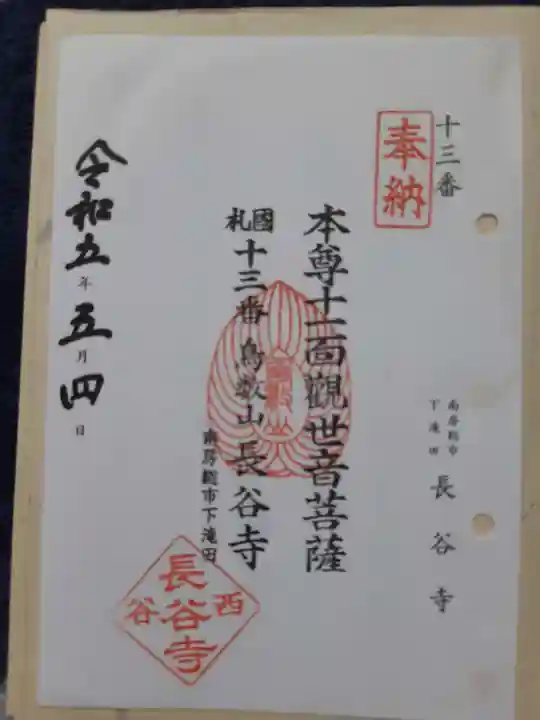 十三番
奉納
南房総市
下滝田
長谷寺
本尊十一面觀世音菩薩
國札
十三番鳥数山長谷寺
南房総市下滝田
長谷寺
西谷
令和五年五月四日